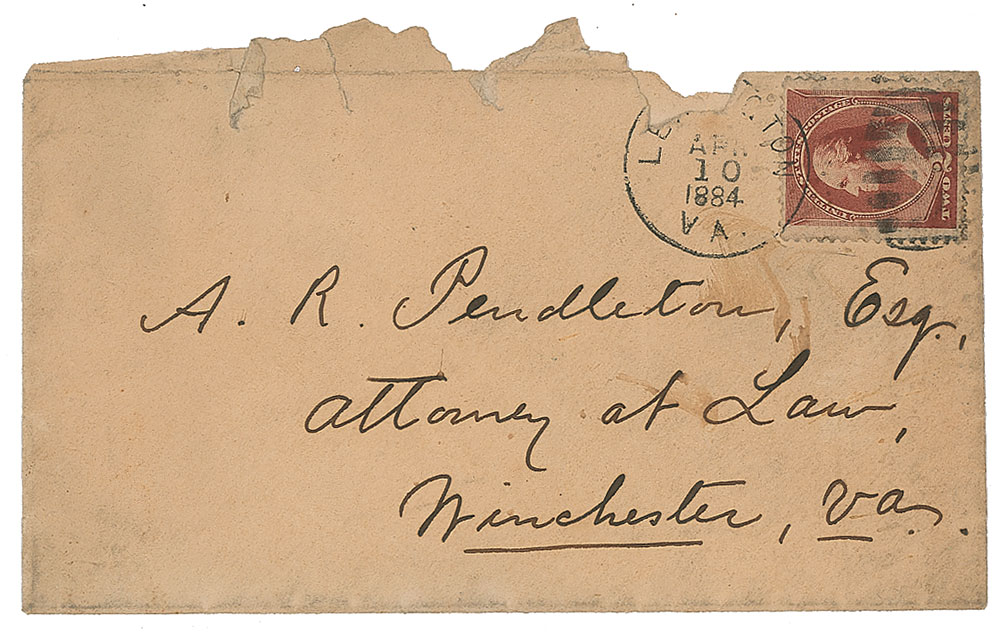 LE CTON
APR
10
1884
VA.
UNITED STATES POSTAGE
TWO 2 CENTS
A. R. Pendleton, Esq.,
Attorney at Law,
Winchester, Va.